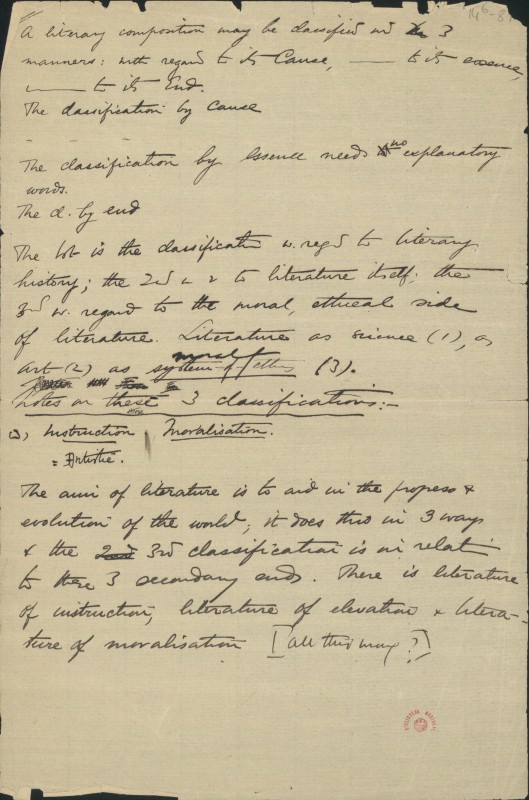 146-87
A literary composition may be classified in 3
manners: with regard to its Cause, —— to its essence,
—— to its End.
The classification by cause
The classification by essence needs no explanatory
words.
The cl. by end
The 1st is the classificatn w. regd to literary
history; the 2nd to literature itself; the
3rd w. regard to the moral, ethical side
of literature. Literature as science (1), as
art (2) as system of moral (3).
Notes on these 3 classifications:—
(3) Instruction Moralisation.
= Artistic.
The aim of literature is to aid in the progress &
evolution of the world; it does this in 3 ways
& the 2nd 3rd classification is in relatn
to these 3 secondary ends. There is literature
of instruction, literature of elevation & litera-
ture of moralisation [all this may?]